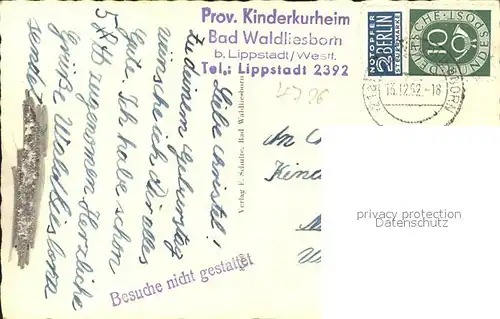 Prov. Kinderkurheim
Bad Waldliesborn
b. Lippstadt/Westf.
Tel.: Lippstadt 2392
NOTOPFER
2 BERLIN
STEUERMARKE
DEUTSCHE BUNDESPOST
10
16.12.52.-18
Liebe Christel!
Zu deinem Geburtstag
wünsche ich dir alles
Gut. Ich habe schon
5 ℔ zugenomen Herzliche
Grüße
sendet
Verlag F. Schulte, Bad Waldliesborn
An
Besuche nicht gestattet
privacy protection
watermark